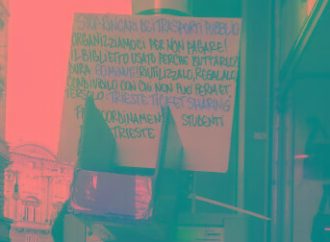 STOP RINCARI DEI TRASPORTI PUBBLICI
ORGANIZZIAMOCI PER NON PAGARE!
IL BIGLIETTO USATO PERCHÈ BUTTARLO?
DURA 60 MINUTI! RIUTILIZZALO, REGALALO
CONDIVIDILO CON CHI NON PUÒ PERMET
TERSELO. TRIESTE TICKET SHARING
COORDINAMENTO STUDENTI
TRIESTE